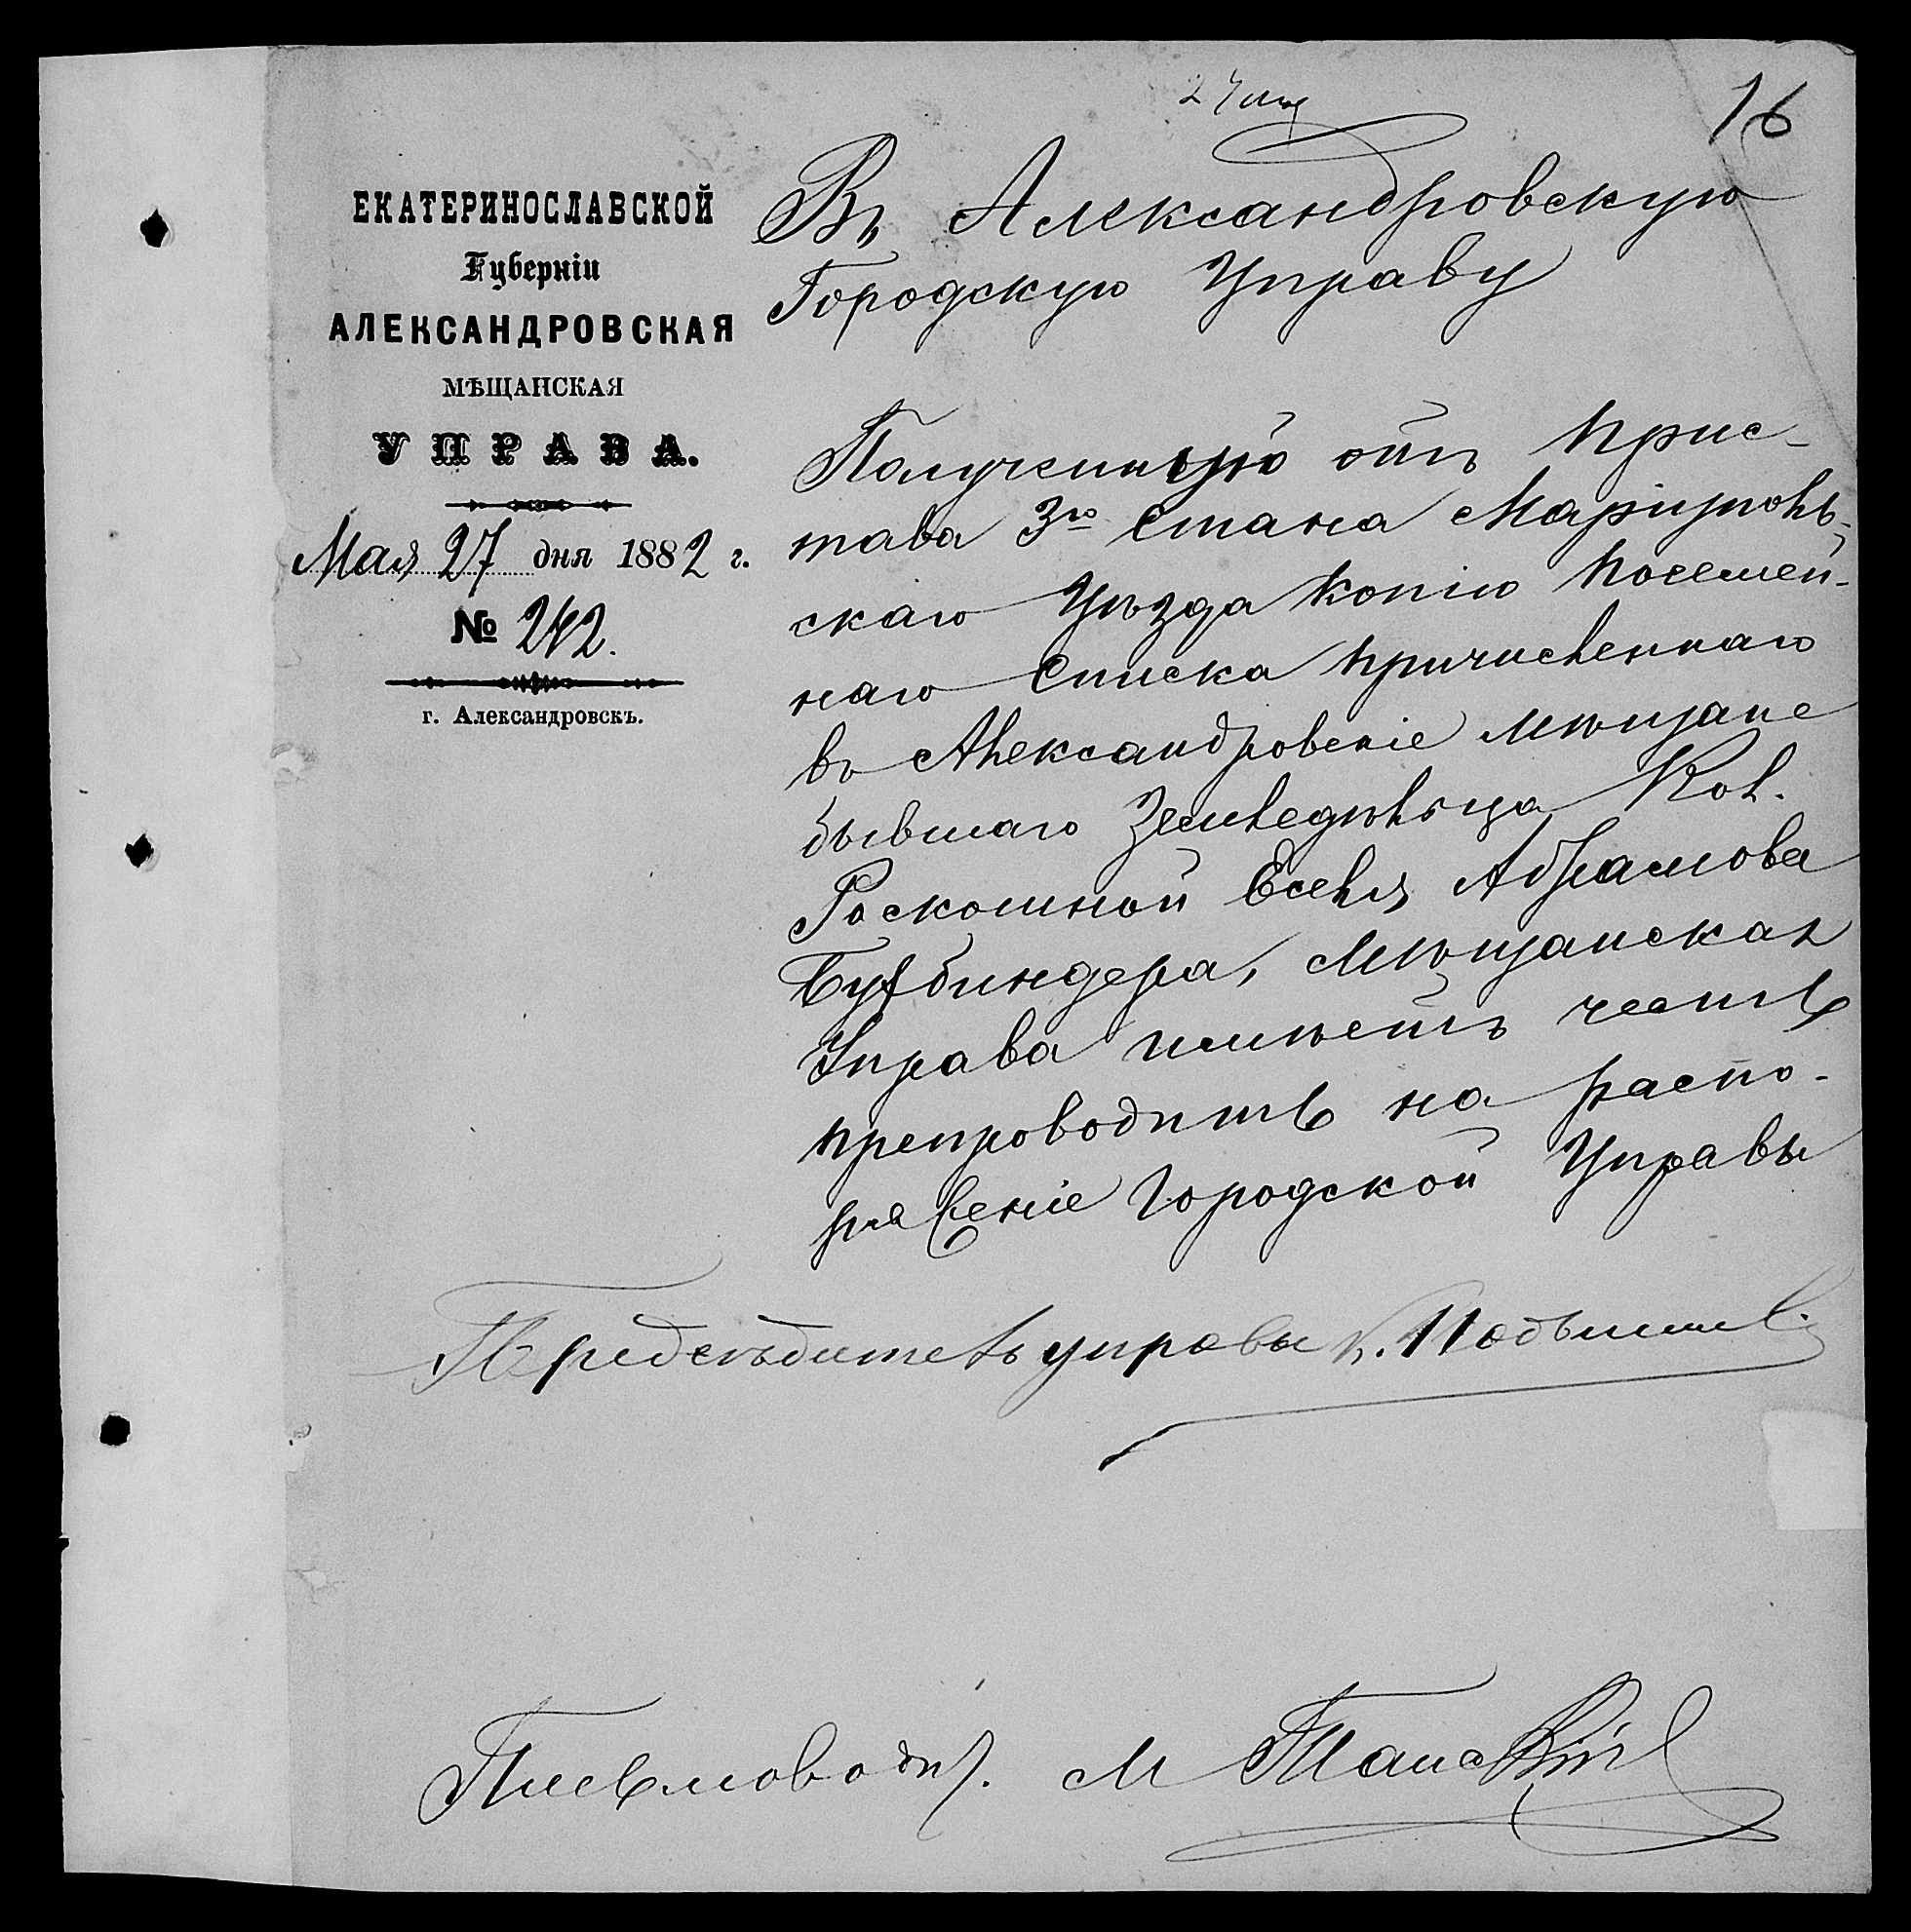 16
ЕКАТЕРИНОСЛАВСКОЙ
Губерніи
АЛЕКСАНДРОВСКАЯ
МѢЩАНСКАЯ
УПРАВА.
Мая 27 дня 1882 г.
№ 242.
г. Александровскъ.
Въ Александровскую
Городскую Управу
Полученную отъ Прис-
тава 3го Стана Маріуполь-
скаго Уѣзда Копію Посемей-
наго Списка Причисленнаго
въ Александровскіе мѣщане
бывшаго Земледѣльца Кол.
Роскошной Еселя Абрамова
Бухбиндера, Мѣщанская
Управа имѣетъ честь
препроводить на распо-
ряженіе Городской Управы
Председатель управы
Письмовод. М